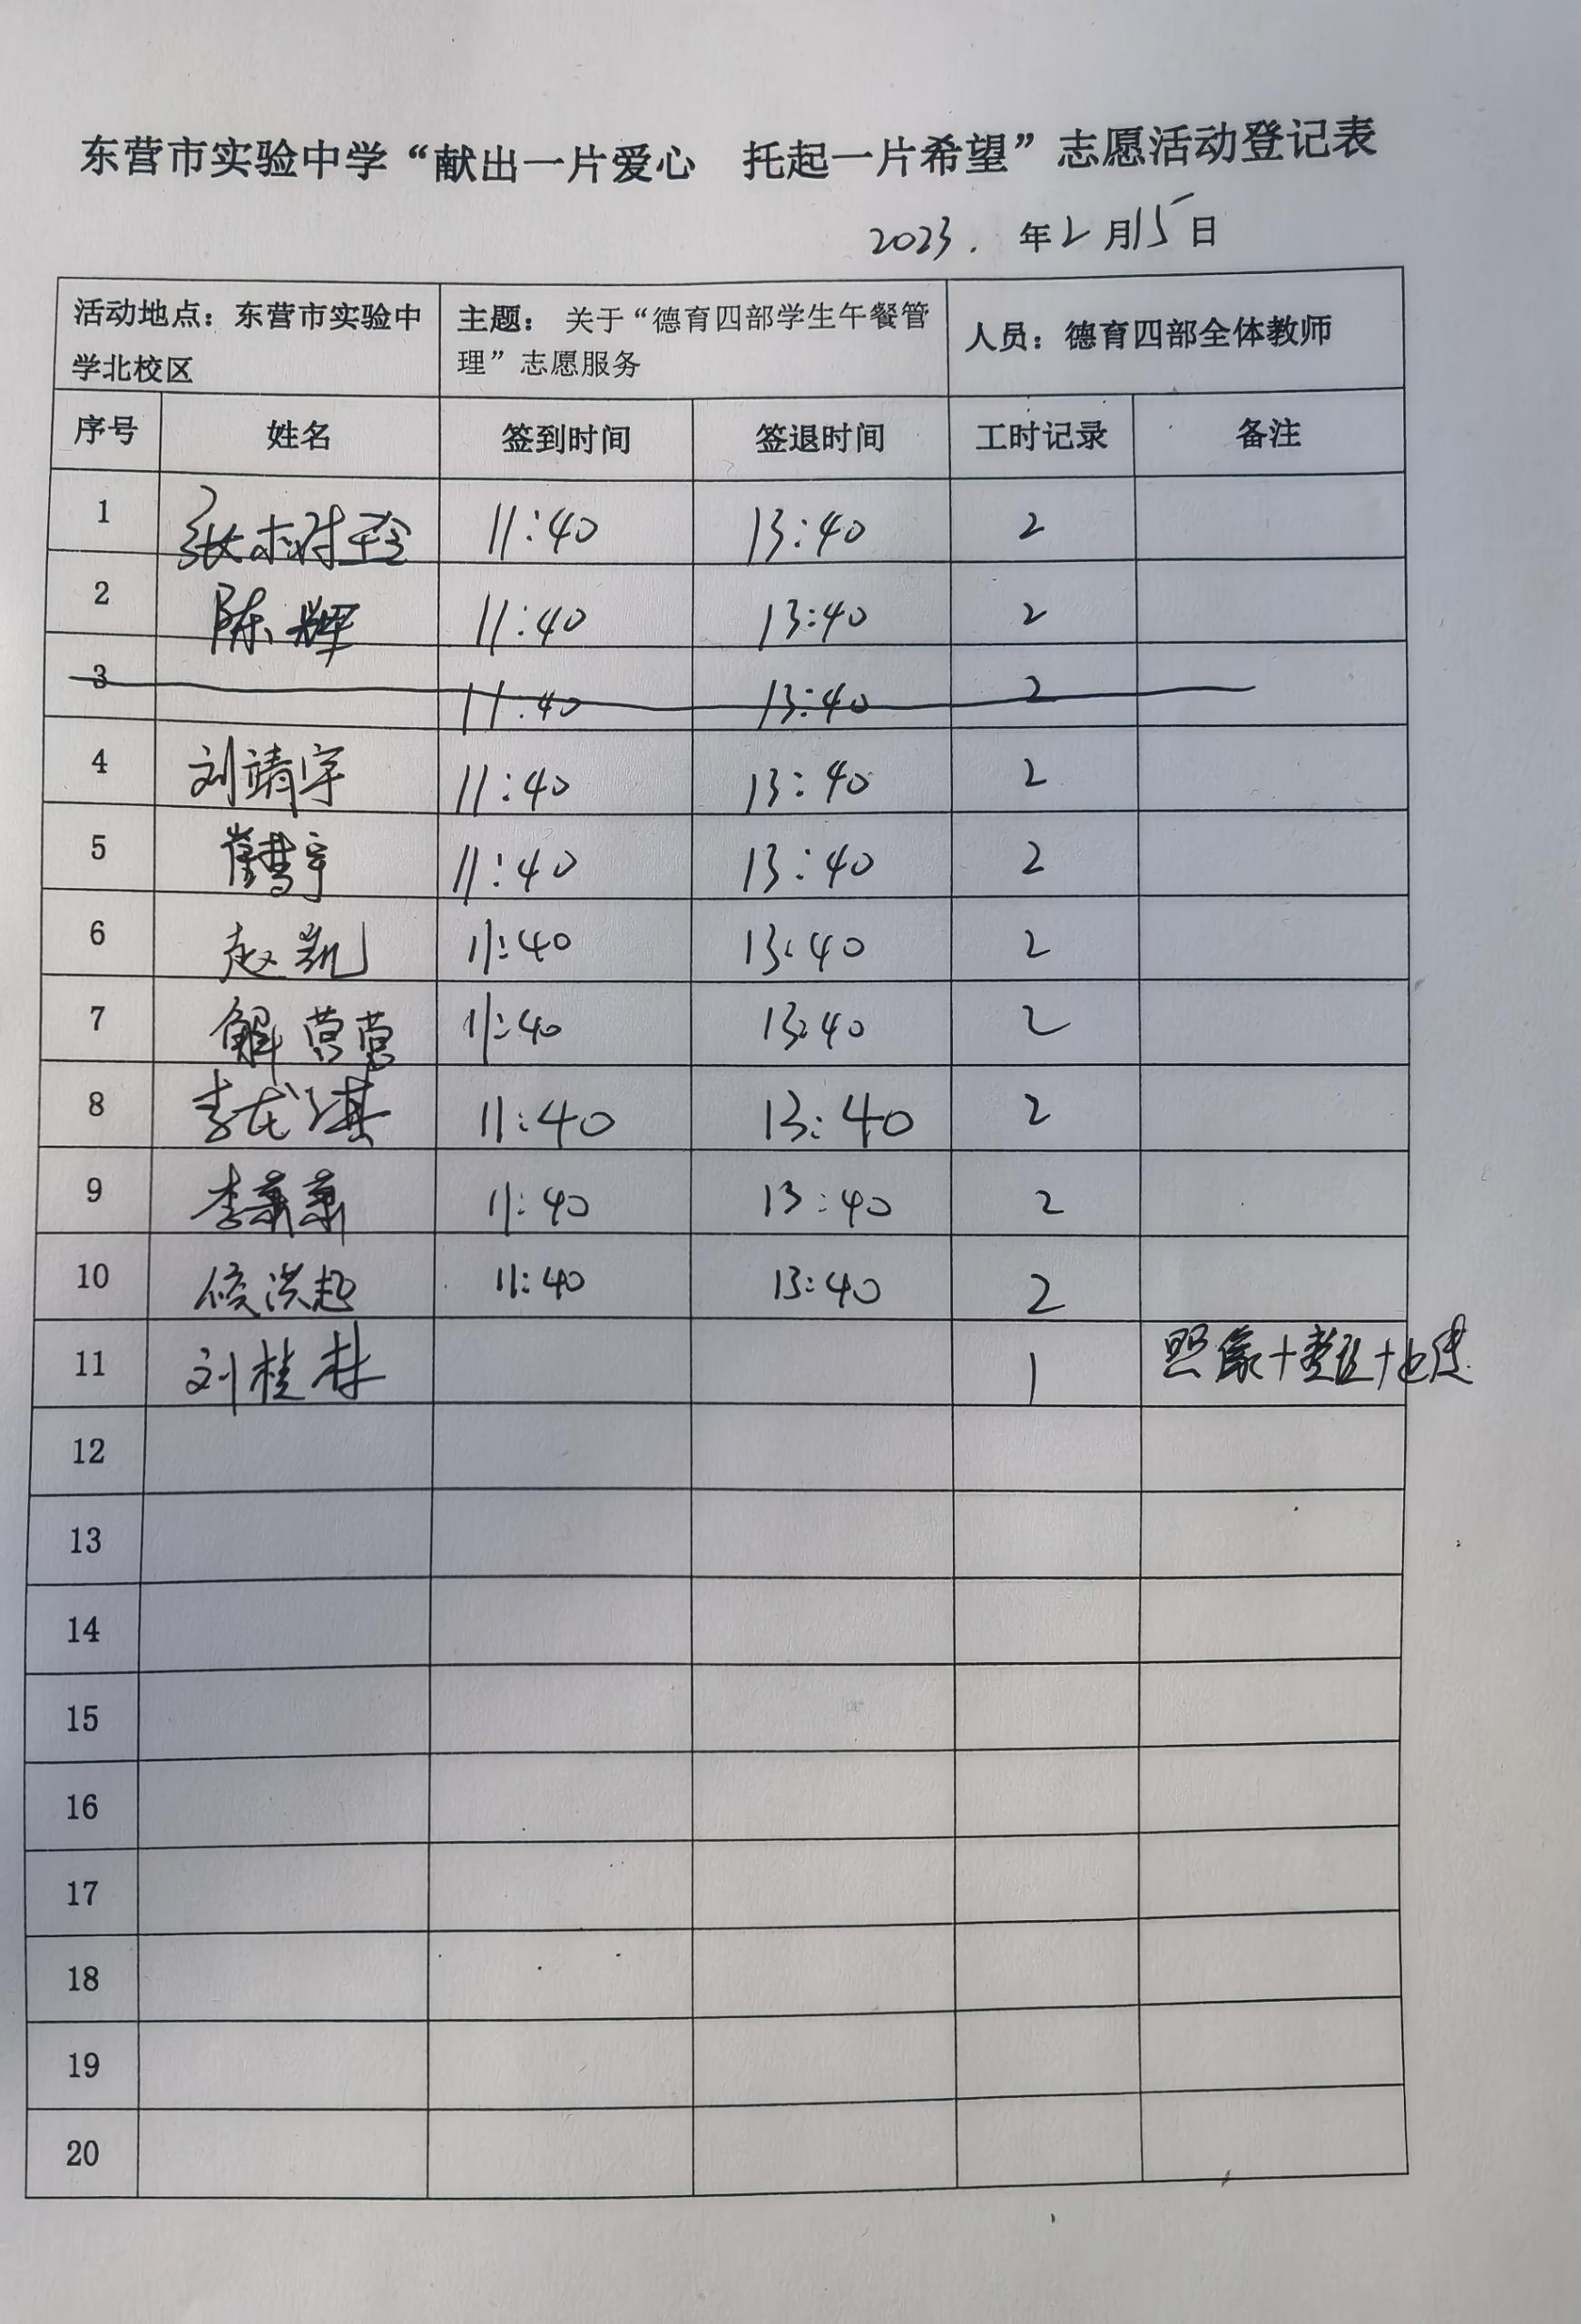 东营市实验中学“献出一片爱心 托起一片希望”志愿活动登记表
2023. 年2月15日
活动地点：东营市实验中学北校区 主题：关于“德育四部学生午餐管理”志愿服务 人员：德育四部全体教师
序号 姓名 签到时间 签退时间 工时记录 备注
1 张树全 11:40 13:40 2
2 陈辉 11:40 13:40 2
3 11:40 13:40 2
4 刘靖宇 11:40 13:40 2
5 11:40 13:40 2
6 赵凯 11:40 13:40 2
7 解营营 11:40 13:40 2
8 李龙湛 11:40 13:40 2
9 李萧萧 11:40 13:40 2
10 侯洪起 11:40 13:40 2
11 刘桂林 1 照像+整理+上传
12
13
14
15
16
17
18
19
20